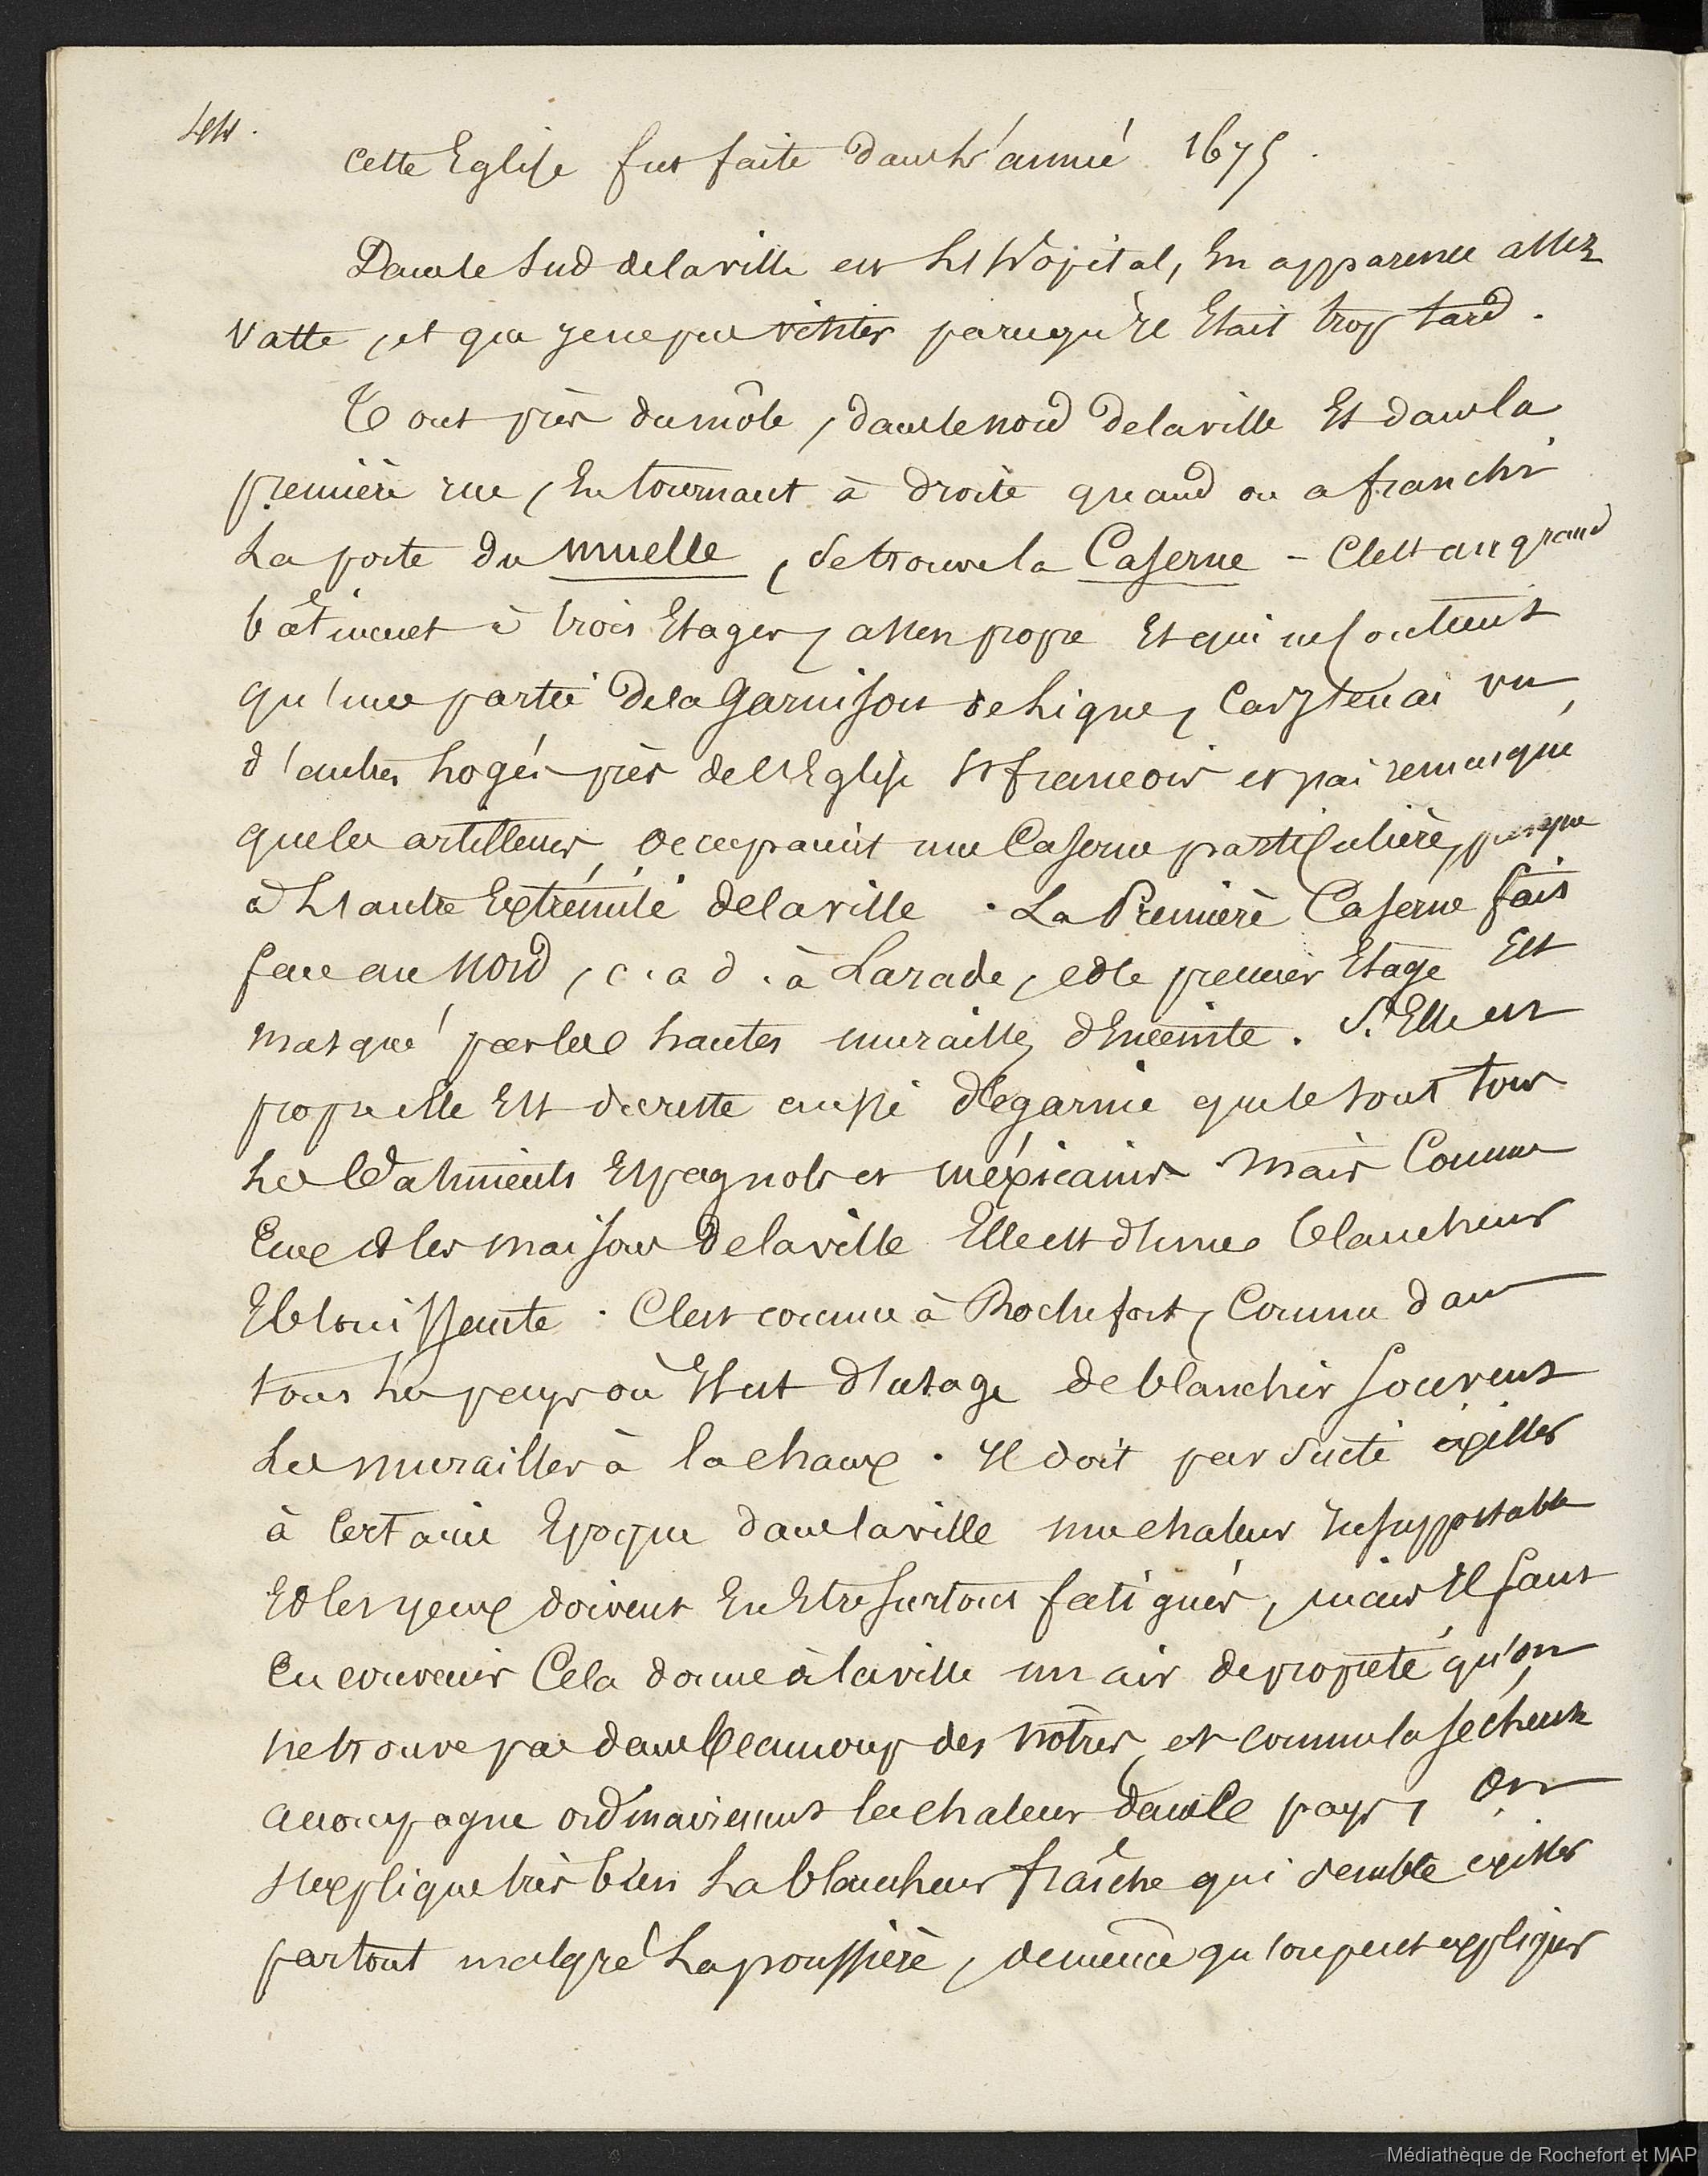 44.
cette Eglise fut faite dans l'année 1675.
Dans le Sud de la ville est l'hôpital, En apparence assez
vaste, et que je ne pus visiter parcequ'il Etait trop tard.
Tout près du môle, dans le nord de la ville Et dans la
première rue, En tournant à droite quand on a franchi
La porte du muelle, se trouve la Caserne - C'est un grand
bâtiment à trois Etages, assez propre Et qui ne contient
qu'une partie de la Garnison de Ligne, Car j'en ai vu
d'autres Logés près de l'Eglise St françois et j'ai remarqué
que les artilleurs occupaient une Caserne particulière, presque
à L'autre Extrémité de la ville. La Première Caserne fait
face au nord, c.a.d. à La rade, et le premier Etage Est
masqué par les hautes murailles d'Enceinte. Si Elle est
propre elle Est du reste aussi dégarnie que le sont tous
Les Batiments Espagnols et méxicains. Mais Comme
Eux et les maisons de la ville Elle est d'une blancheur
Eblouissante. C'est comme à Rochefort, Comme dans
tous les pays où Il est d'usage de blanchir souvent
Les murailles à la chaux. Il doit par suite exister
à Certaine Epoque dans la ville une chaleur Insupportable
Et les yeux doivent En Etre surtout fatigués, mais Il faut
En convenir Cela donne à la ville un air de propreté qu'on
ne trouve pas dans beaucoup des nôtres, et comme la sécheresse
accompagne ordinairement la chaleur dans le pays, On
s'explique très bien La blancheur fraîche qui semble exister
partout malgré La poussière, de même qu'on peut expliquer
Médiathèque de Rochefort et MAP